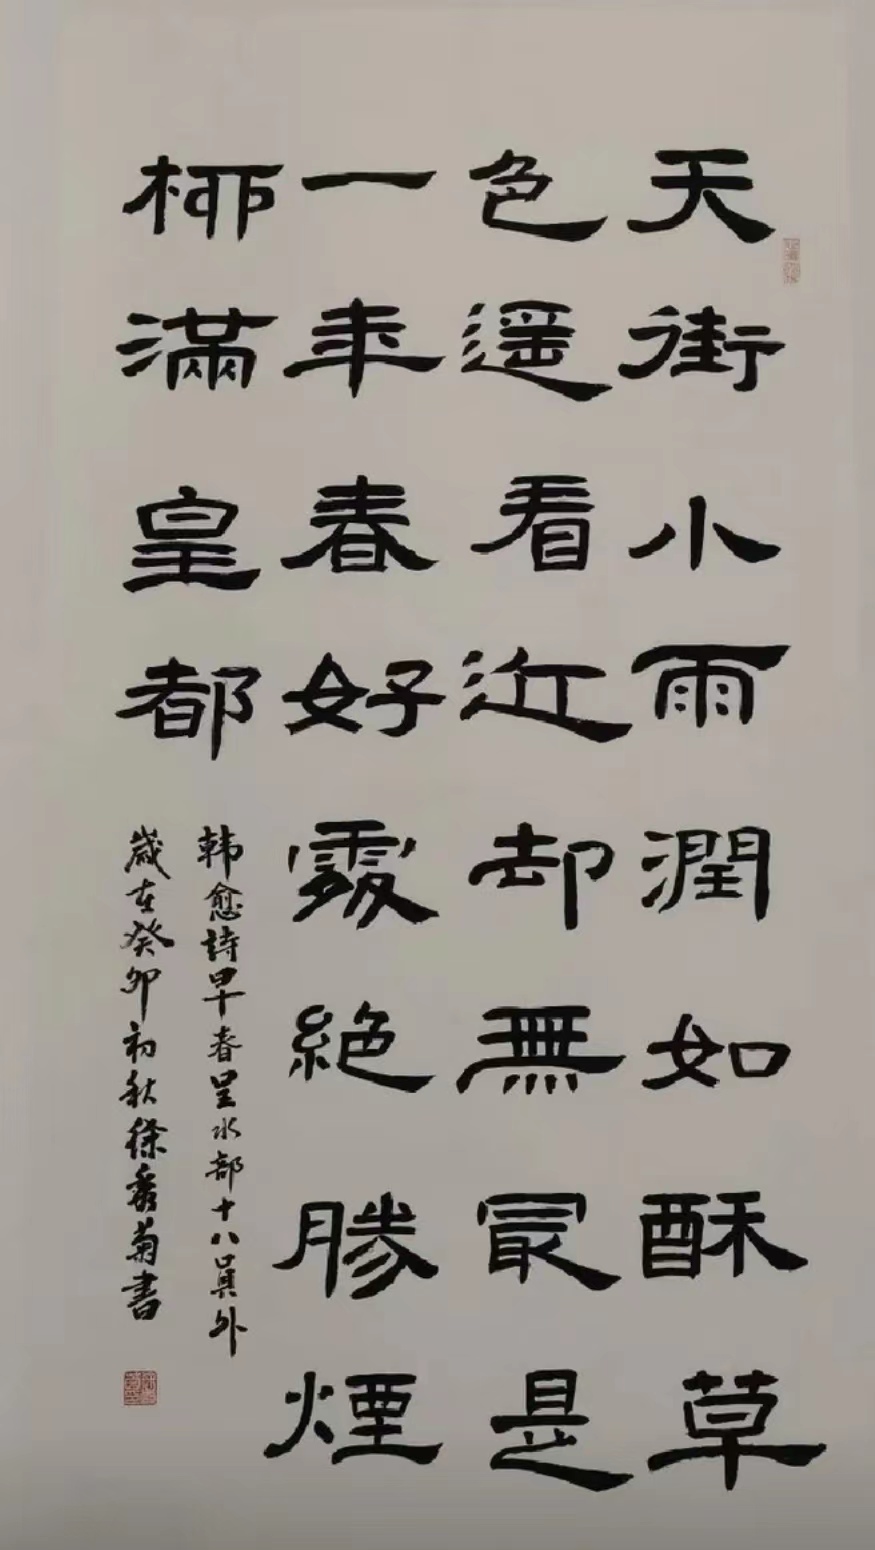 天街小雨潤如酥草
色遥看近却無冣是
一年春好處絕勝煙
桺滿皇都
韩愈詩早春呈水部十八員外
歲在癸卯初秋徐秀菊書